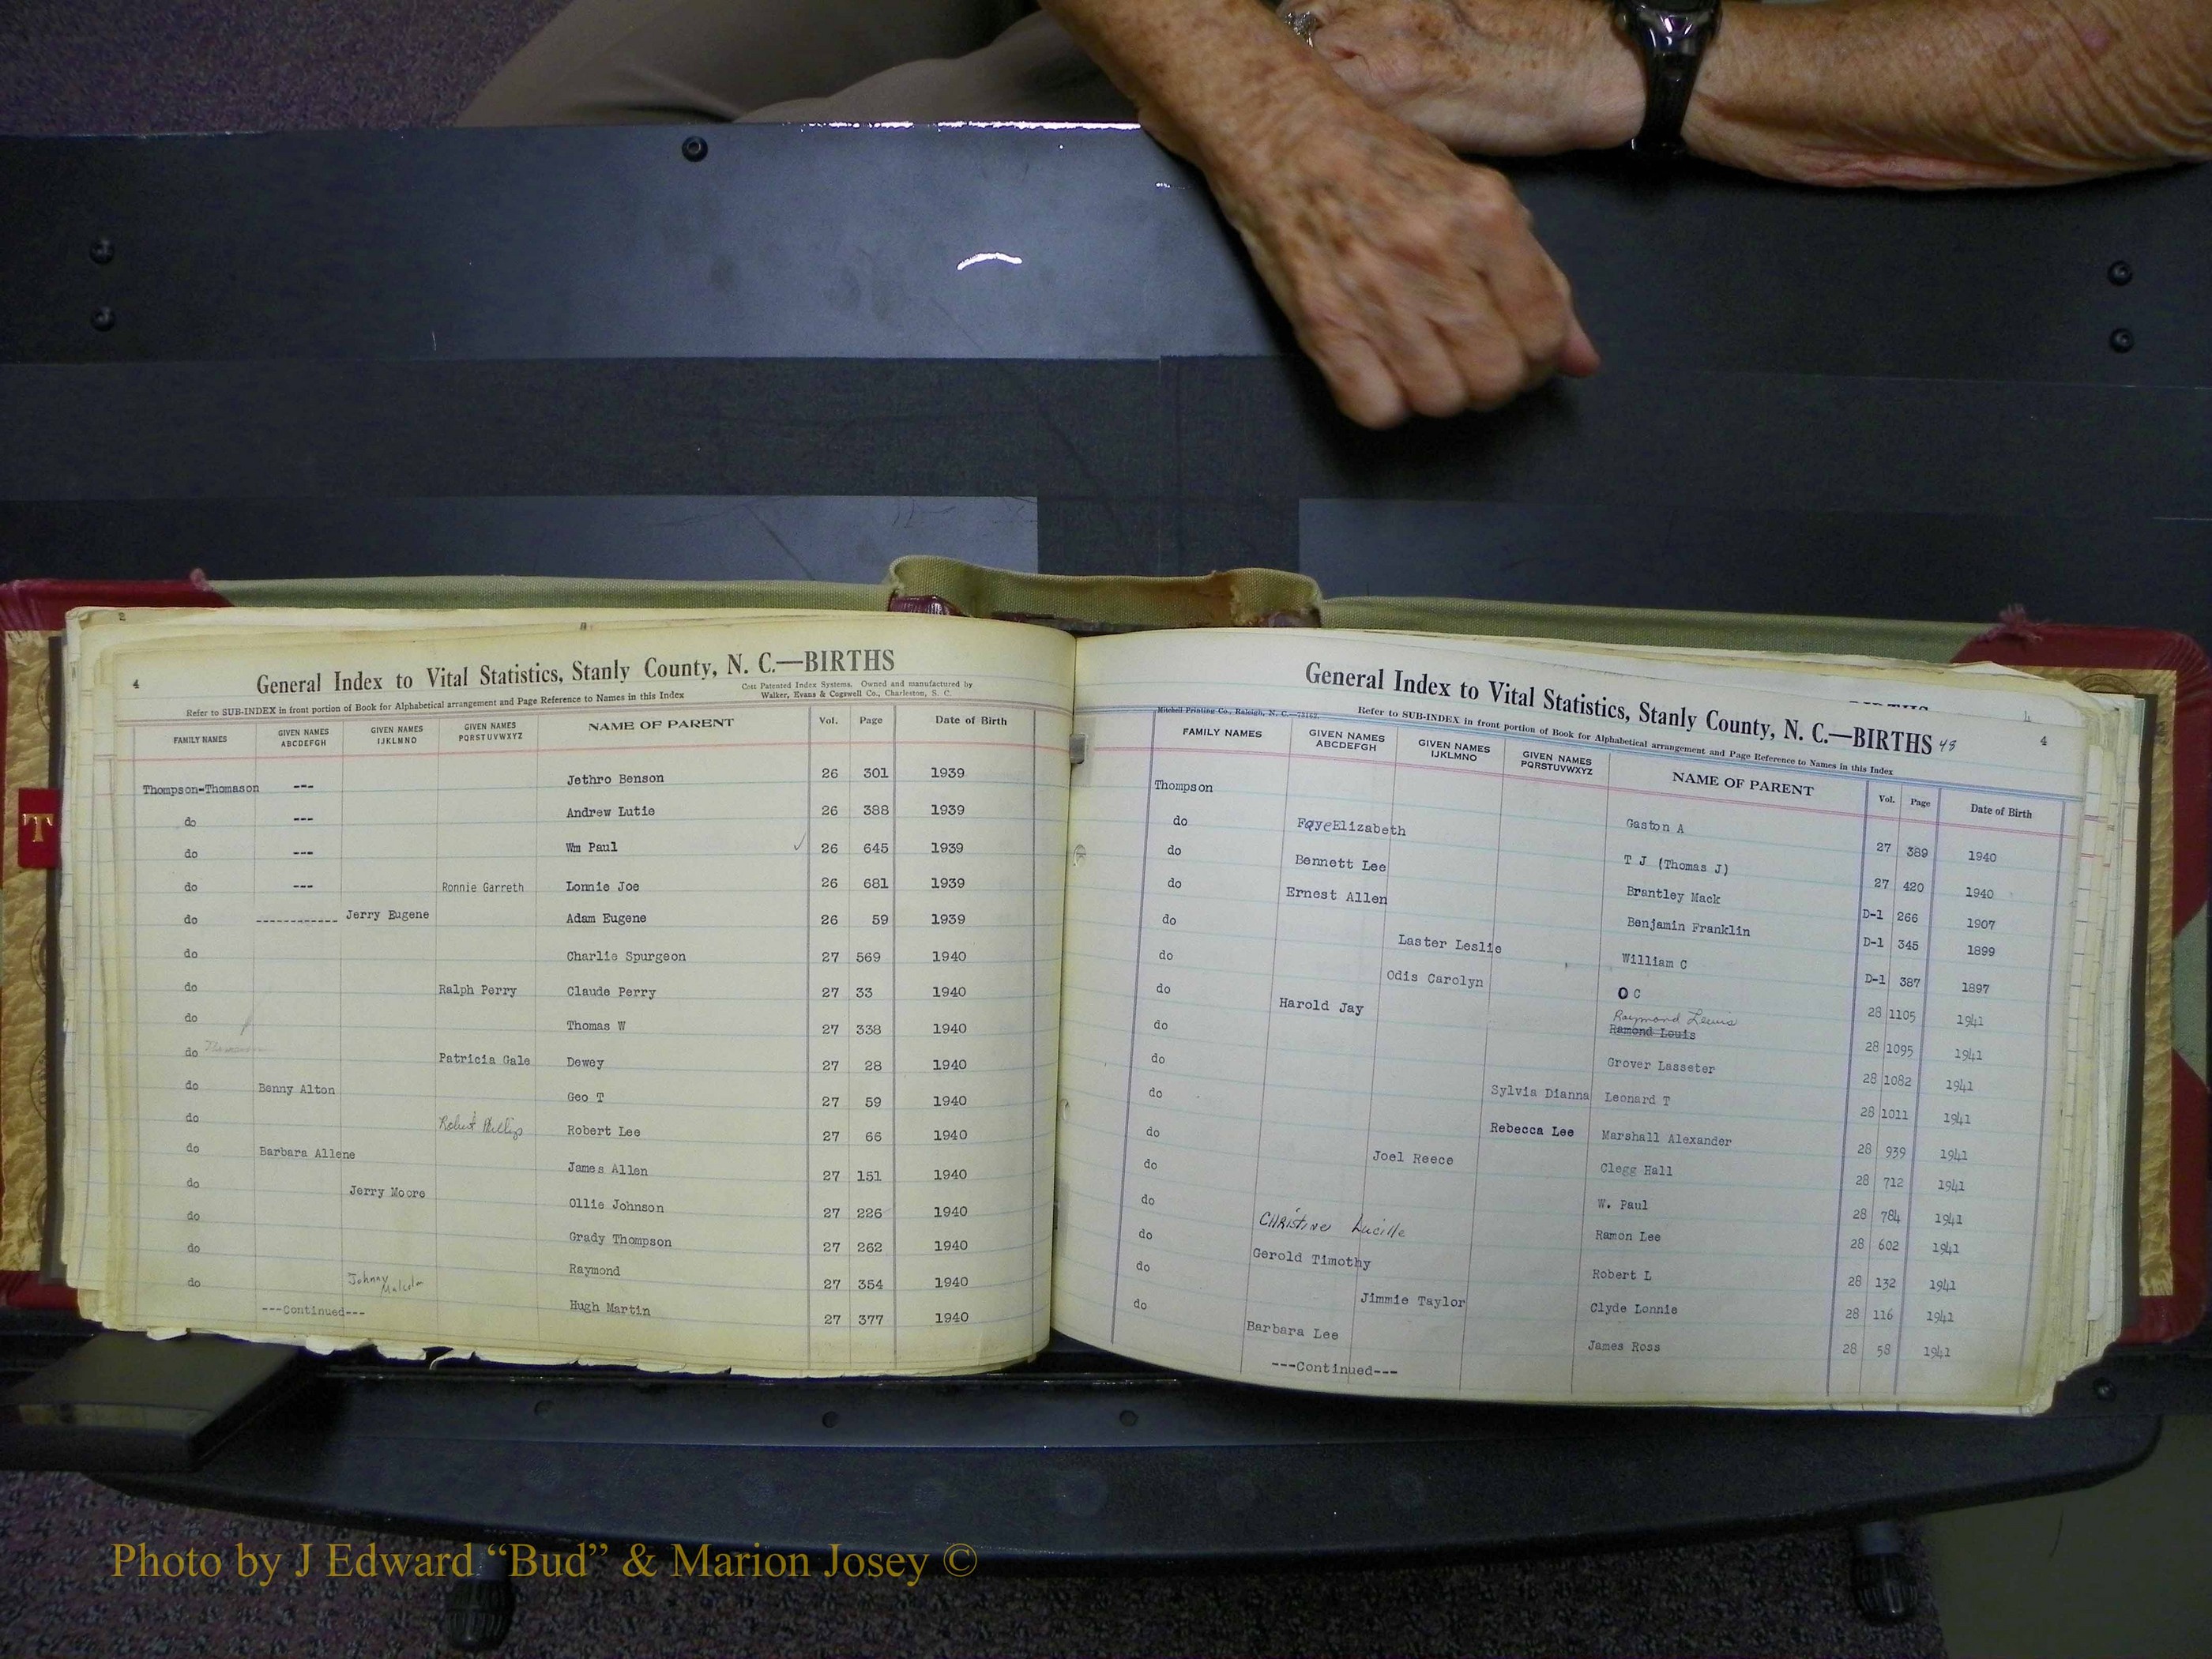 4
General Index to Vital Statistics, Stanly County, N. C.—BIRTHS
Refer to SUB-INDEX in front portion of Book for Alphabetical arrangement and Page Reference to Names in this Index
Cott Patented Index Systems. Owned and manufactured by
Walker, Evans & Cogswell Co., Charleston, S. C.
FAMILY NAMES GIVEN NAMES ABCDEFGH GIVEN NAMES IJKLMNO GIVEN NAMES PQRSTUVWXYZ NAME OF PARENT Vol. Page Date of Birth
Thompson-Thomason --- Jethro Benson 26 301 1939
do --- Andrew Lutie 26 388 1939
do --- Wm Paul 26 645 1939
do --- Ronnie Garreth Lonnie Joe 26 681 1939
do ------------ Jerry Eugene Adam Eugene 26 59 1939
do Charlie Spurgeon 27 569 1940
do Ralph Perry Claude Perry 27 33 1940
do Thomas W 27 338 1940
do Patricia Gale Dewey 27 28 1940
do Benny Alton Geo T 27 59 1940
do Robert Phillip Robert Lee 27 66 1940
do Barbara Allene James Allen 27 151 1940
do Jerry Moore Ollie Johnson 27 226 1940
do Grady Thompson 27 262 1940
do Raymond 27 354 1940
do Johnny Malcolm Hugh Martin 27 377 1940
---Continued---
General Index to Vital Statistics, Stanly County, N. C.—BIRTHS 48
4
Mitchell Printing Co., Raleigh, N. C.—73162.
Refer to SUB-INDEX in front portion of Book for Alphabetical arrangement and Page Reference to Names in this Index
FAMILY NAMES GIVEN NAMES ABCDEFGH GIVEN NAMES IJKLMNO GIVEN NAMES PQRSTUVWXYZ NAME OF PARENT Vol. Page Date of Birth
Thompson Gaston A 27 389 1940
do Faye Elizabeth T J (Thomas J) 27 420 1940
do Bennett Lee Brantley Mack D-1 266 1907
do Ernest Allen Benjamin Franklin D-1 345 1899
do Laster Leslie William C D-1 387 1897
do Odis Carolyn O C 28 1105 1941
do Harold Jay Raymond Lewis Ramond Louis 28 1095 1941
do Grover Lasseter 28 1082 1941
do Sylvia Dianna Leonard T 28 1011 1941
do Rebecca Lee Marshall Alexander 28 939 1941
do Joel Reece Clegg Hall 28 712 1941
do W. Paul 28 784 1941
do Christine Lucille Ramon Lee 28 602 1941
do Gerold Timothy Robert L 28 132 1941
do Jimmie Taylor Clyde Lonnie 28 116 1941
do Barbara Lee James Ross 28 58 1941
---Continued---
T
Photo by J Edward “Bud” & Marion Josey ©